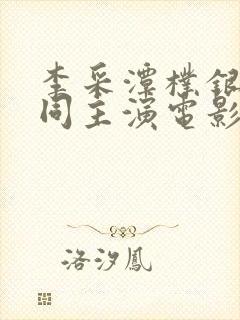 李采潭樸銀
同主演電影
洛汐鳳